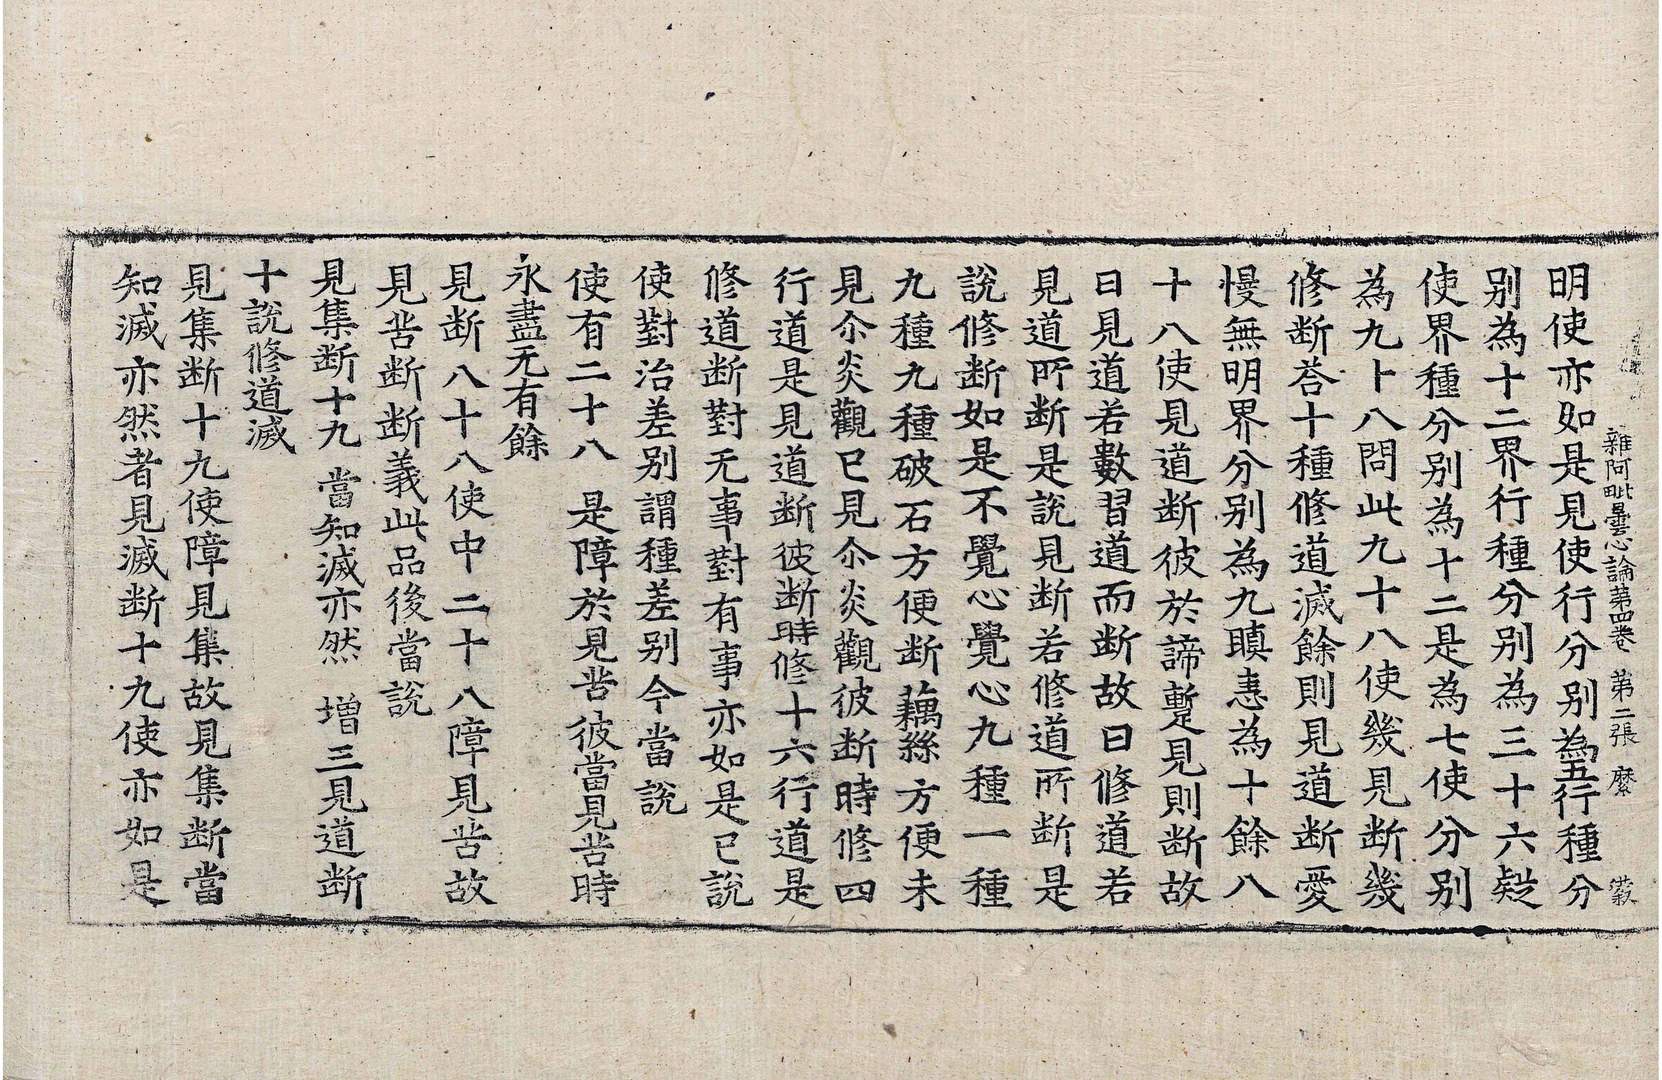 雜阿毗曇心論第四卷 第二張 縻
明使亦如是見使行分別為五行種分
別為十二界行種分別為三十六疑
使界種分別為十二是為七使分別
為九十八問此九十八使幾見斷幾
修斷荅十種修道滅餘則見道斷愛
慢無明界分別為九瞋恚為十餘八
十八使見道斷彼於諦蹔見則斷故
曰見道若數習道而斷故曰修道若
見道所斷是說見斷若修道所斷是
說修斷如是不覺心覺心九種一種
九種九種破石方便斷藕絲方便未
見尒炎觀已見尒炎觀彼斷時修四
行道是見道斷彼斷時修十六行道是
修道斷對无事對有事亦如是已說
使對治差別謂種差別今當說
使有二十八 是障於見苦彼當見苦時
永盡无有餘
見斷八十八使中二十八障見苦故
見苦斷斷義此品後當說
見集斷十九 當知滅亦然 增三見道斷
十說修道滅
見集斷十九使障見集故見集斷當
知滅亦然者見滅斷十九使亦如是